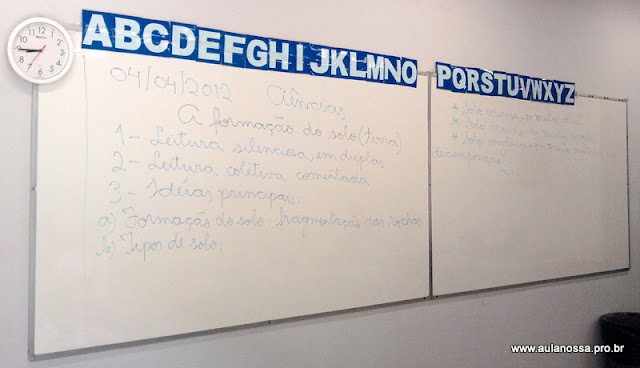 ABCDEFGHIJKLMNO
PQRSTUVWXYZ
04/04/2012 Ciências
A formação do solo (terra)
1- Leitura silenciosa, em duplas
2- Leitura coletiva comentada
3- Idéias principais:
a) Formação do solo: fragmentação das rochas
b) Tipos de solo:
* Solo
* Solo
* Solo
decomposição
www.aulanossa.pro.br